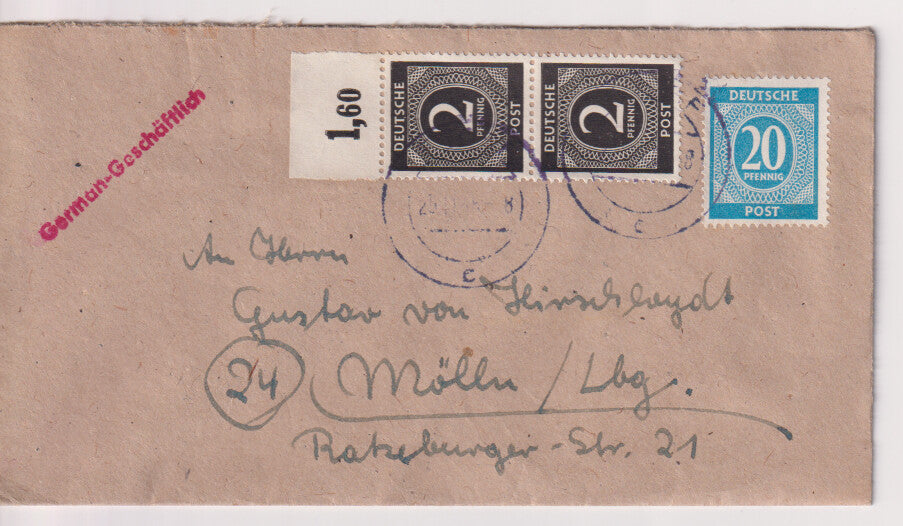 German-Geschäftlich
1,60
DEUTSCHE
2
PFENNIG
POST
DEUTSCHE
2
PFENNIG
POST
DEUTSCHE
20
PFENNIG
POST
c
c
An Herrn
Gustav von Hirschheydt
24 Mölln / Lbg.
Ratzeburger-Str. 21